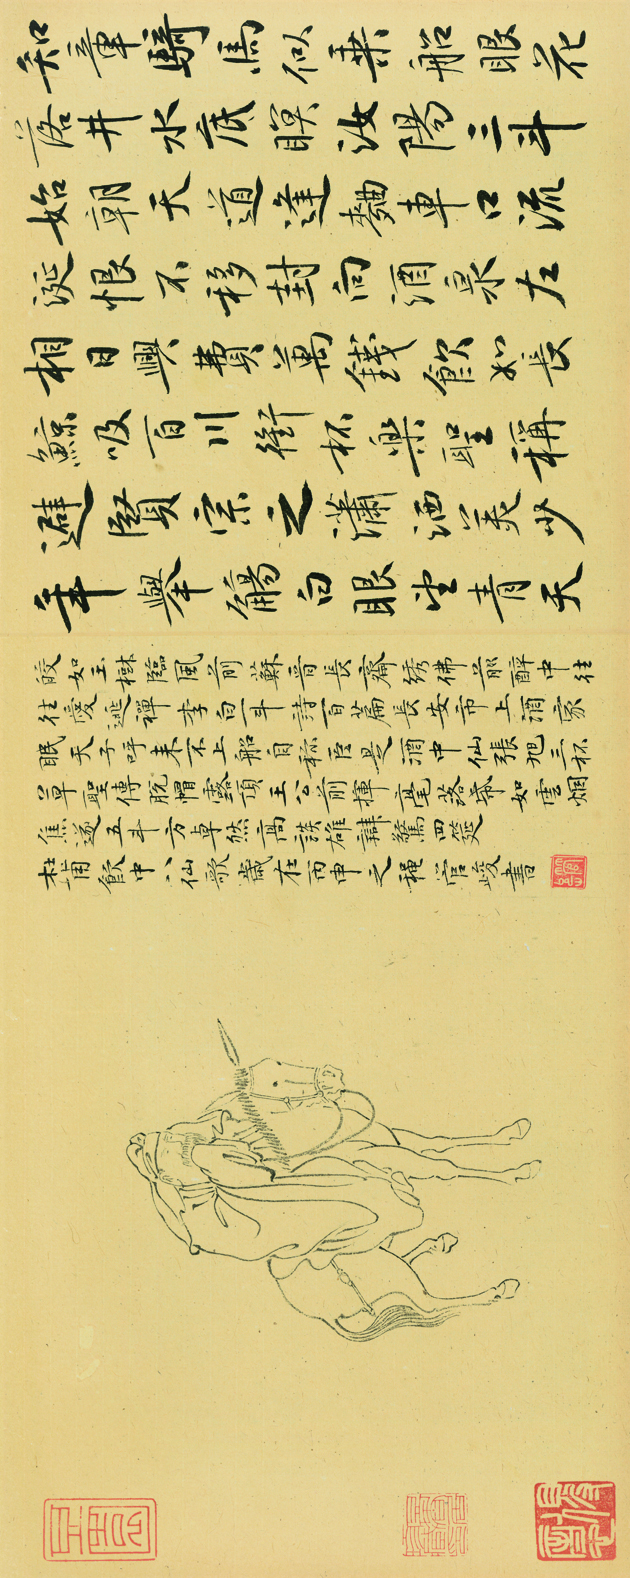 知章騎馬似乘船眼花
落井水底瞑汝陽三斗
始朝天道逢麴車口流
涎恨不移封向酒泉左
相日興費萬錢飲如長
鯨吸百川銜杯樂聖稱
避賢宗之瀟洒美少
年舉觴白眼望青天
皎如玉樹臨風前蘇晉長齋綉佛前醉中往
往愛逃禪李白一斗詩百篇長安市上酒家
眠天子呼来不上船自称臣是酒中仙張旭三杯
草聖傳脫帽露頂王公前揮毫落帋如雲烟
焦遂五斗方卓然高談雄辯驚四筵
杜甫飲中八仙歌歲在丙申之穐官峻書